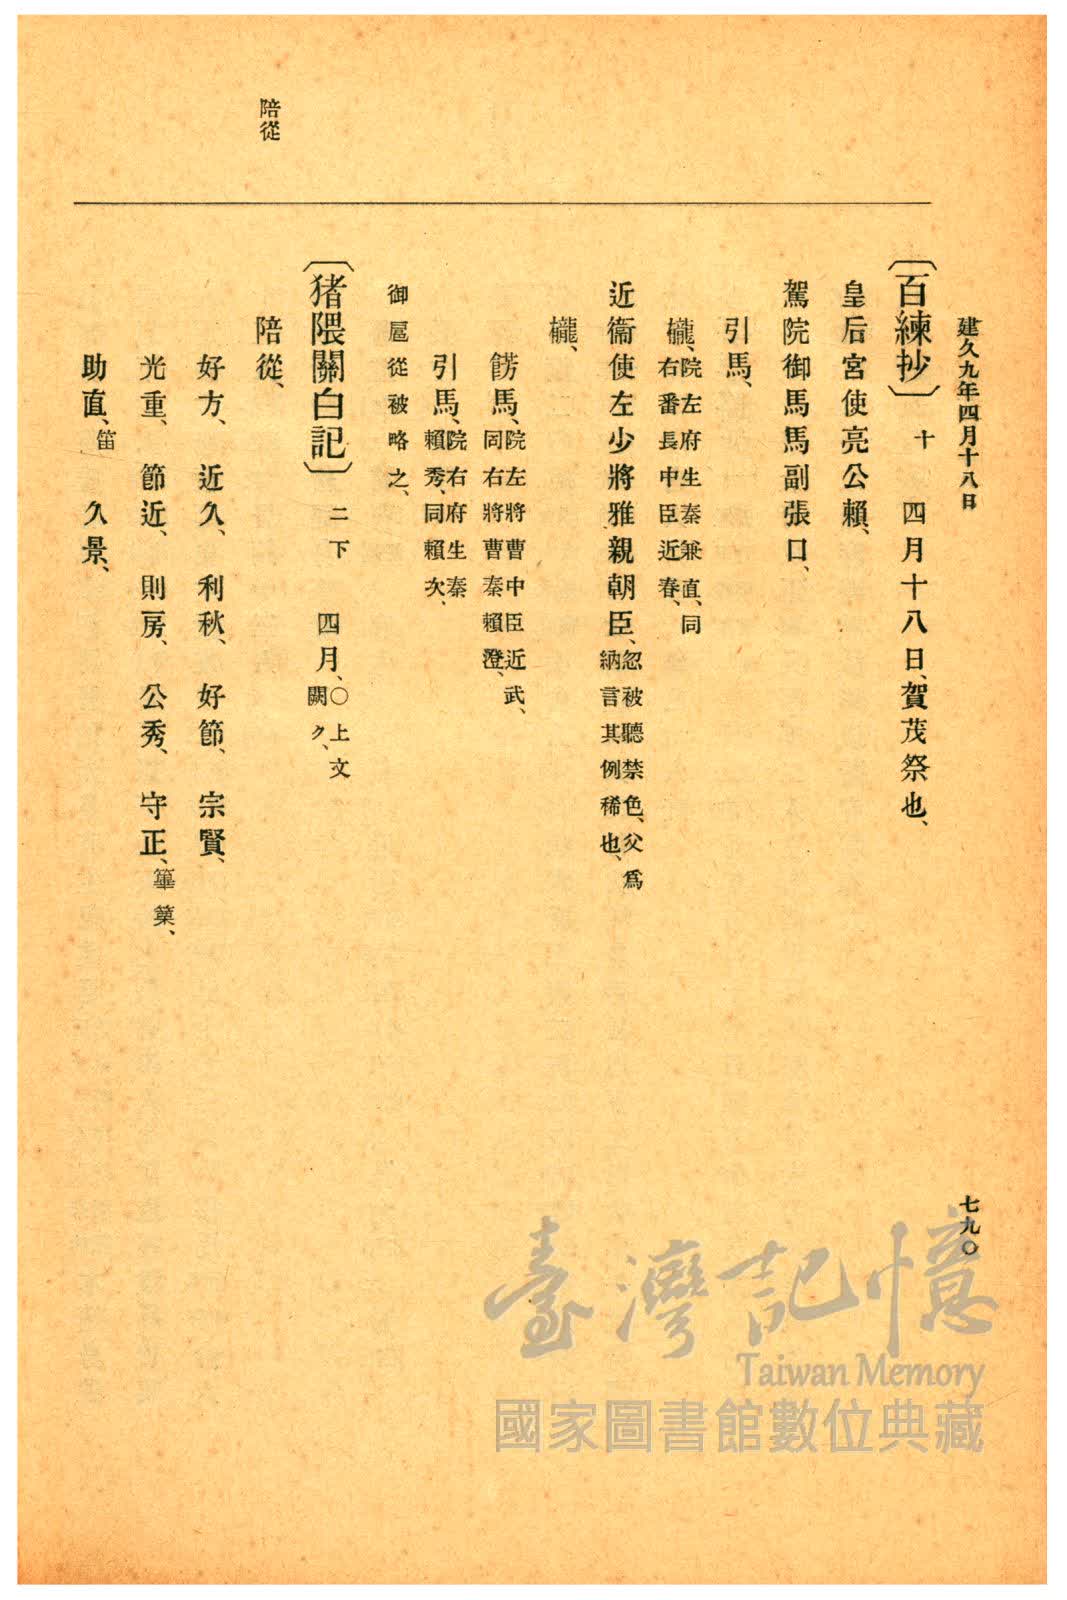 建久九年四月十八日
七九〇
〔百練抄〕十 四月十八日、賀茂祭也、
皇后宮使亮公賴、
駕院御馬馬副張口、
引馬、
櫳、院左府生秦兼直、同
右番長中臣近春、
近衞使左少將雅親朝臣、忽被聽禁色、父爲
納言其例稀也、
櫳、
餝馬、院左將曹中臣近武、
同右將曹秦賴澄、
引馬、院右府生秦
賴秀、同賴次、
御扈從被略之、
〔猪隈關白記〕二下 四月、〇上文
闕ク、
陪從
陪從、
好方、 近久、 利秋、 好節、 宗賢、
光重、 節近、 則房、 公秀、 守正、篳篥、
助直、笛 久景、
臺灣記憶
Taiwan Memory
國家圖書館數位典藏